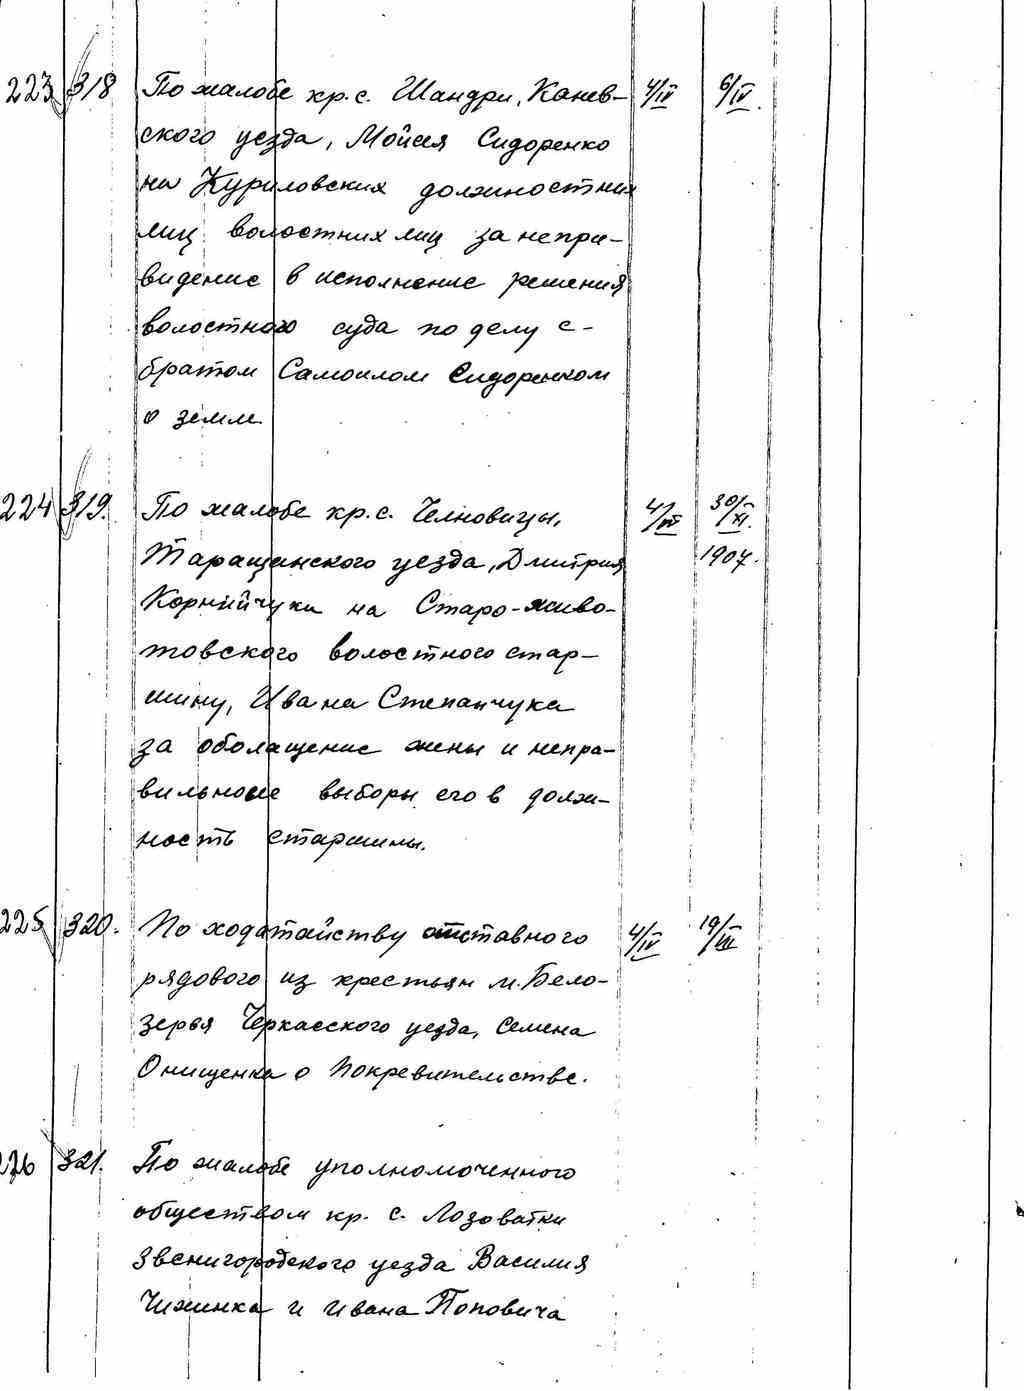 223 318 По жалобе кр. с. Шандри, Канев- 4/IV 6/IV.
ского уезда, Мойсея Сидоренко
на Куриловских должностних
лиц волостних лиц за непри-
видение в исполнение решения
волостного суда по делу с-
братом Самоилом Сидоренком
о земле.
224 319. По жалобе кр. с. Челновицы, 30/XI.
Таращанского уезда, Дмитрия 1907.
Корнийчука на Старо-живо-
товского волостного стар-
шину, Ивана Степанчука
за оболащение жены и непра-
вильные выборы его в долж-
ность старшины.
225 320. По ходатайству отставного 4/IV 19/III
рядового из крестьян м. Бело-
зерья Черкасского уезда, Семена
Онищенка о покревительстве.
226 321. По жалобе уполномоченного
обществом кр. с. Лозоватки
Звенигородского уезда Василия
Чижинка и Ивана Поповича